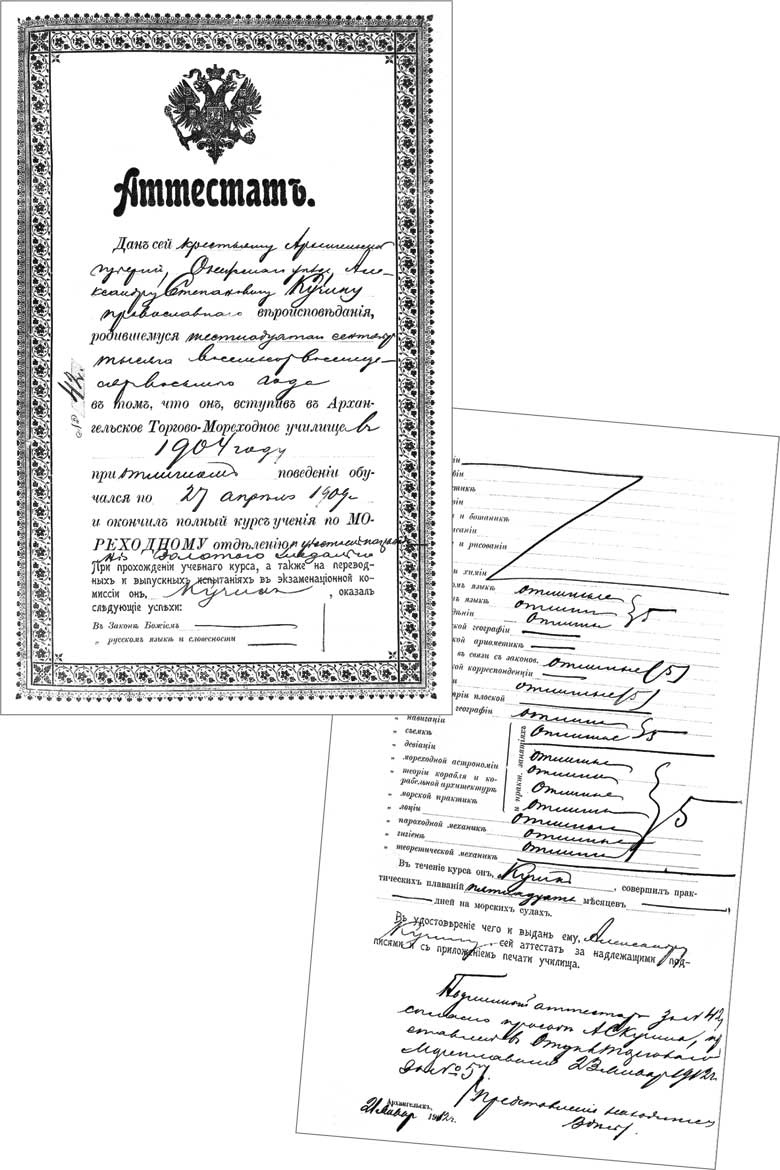 Аттестатъ.
Данъ сей крестьянину Архангельской
губерніи, Онежскаго уѣзда, Але-
ксандру Степановичу Кучину
православнаго вѣроисповѣданія,
родившемуся шестнадцатаго сентября
тысяча восемьсотъ восемьде-
сятъ восьмого года
№ 42.
въ томъ, что онъ, вступивъ въ Архан-
гельское Торгово-Мореходное училище въ
1904 году
при отличномъ поведеніи обу-
чался по 27 апрѣля 1909 г.
и окончилъ полный курсъ ученія по МО-
РЕХОДНОМУ отдѣленію
золотого медалью
При прохожденіи учебнаго курса, а также на перевод-
ныхъ и выпускныхъ испытаніяхъ въ экзаменаціонной ко-
миссіи онъ, Кучинъ, оказалъ
слѣдующіе успѣхи:
Въ Законѣ Божіемъ
„ русскомъ языкѣ и словесности
и ботаникѣ
и рисованіи
химіи
языкѣ отличные
языкѣ отличные } 5
отличные
географіи
ариѳметикѣ
въ связи съ законов. отличные (5)
корреспонденціи
отличные (5)
плоской
географіи отличные } 5
„ навигаціи отличные
„ съемкѣ
„ девіаціи отличные
„ мореходной астрономіи отличные
„ теоріи корабля и ко-
рабельной архитектурѣ отличные
„ морской практикѣ отличные } 5
„ лоціи отличные
„ пароходной механикѣ отличные
„ гигіенѣ отличные
„ теоретической механикѣ
и практ. занятіяхъ
Въ теченіе курса онъ, Кучинъ, совершилъ прак-
тическихъ плаваній пятнадцать мѣсяцевъ
дней на морскихъ судахъ.
Въ удостовѣреніе чего и выданъ ему, Александру
Кучину, сей аттестатъ за надлежащими под-
писями и съ приложеніемъ печати училища.
Подлинный аттестатъ за № 42,
согласно просьбы А.С. Кучина, пред-
ставленъ въ Отдѣлъ Торговаго
Мореплаванія 23 января 1912 г.
за № 57
Представленіе находится
въ дѣлѣ.
Архангельскъ,
21 января 1912 г.